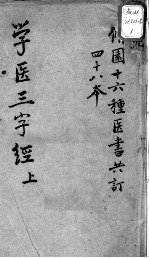 園十六種医書共訂
四十八本
学医三字經上